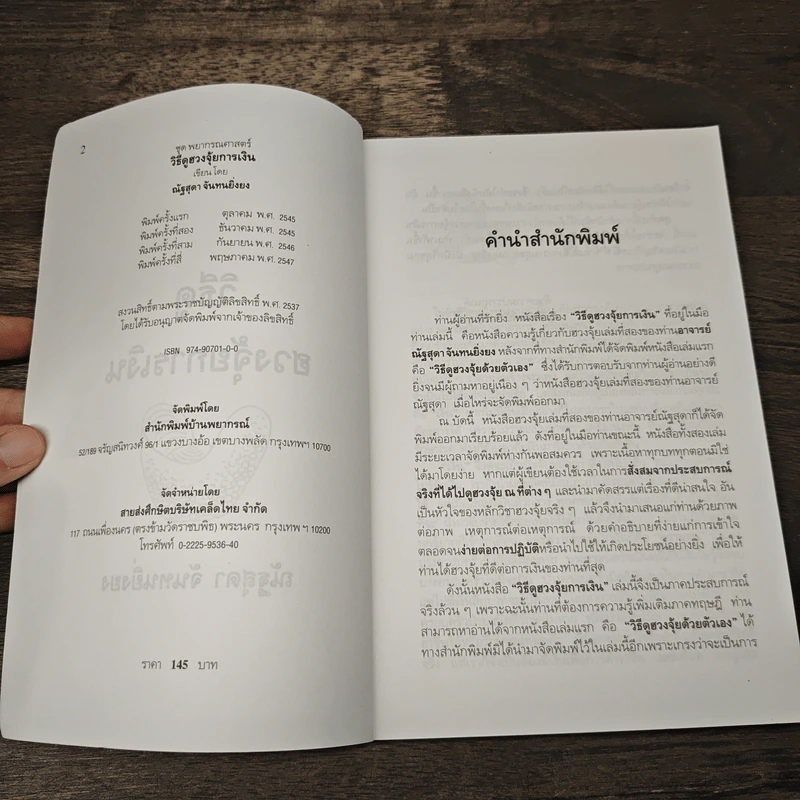 2
ชุด พยากรณศาสตร์
วิธีดูฮวงจุ้ยการเงิน
เขียน โดย
ณัฐสุดา จันทนยิ่งยง
พิมพ์ครั้งแรก ตุลาคม พ.ศ. 2545
พิมพ์ครั้งที่สอง ธันวาคม พ.ศ. 2545
พิมพ์ครั้งที่สาม กันยายน พ.ศ. 2546
พิมพ์ครั้งที่สี่ พฤษภาคม พ.ศ. 2547
สงวนสิทธิ์ตามพระราชบัญญัติลิขสิทธิ์ พ.ศ. 2537
โดยได้รับอนุญาตจัดพิมพ์จากเจ้าของลิขสิทธิ์
ISBN 974-90701-0-0
จัดพิมพ์โดย
สำนักพิมพ์บ้านพยากรณ์
52/189 จรัญสนิทวงศ์ 96/1 แขวงบางอ้อ เขตบางพลัด กรุงเทพฯ 10700
จัดจำหน่ายโดย
สายส่งศึกษิตบริษัทเคล็ดไทย จำกัด
117 ถนนเฟื่องนคร (ตรงข้ามวัดราชบพิธ) พระนคร กรุงเทพ ฯ 10200
โทรศัพท์ 0-2225-9536-40
ราคา 145 บาท
คำนำสำนักพิมพ์
ท่านผู้อ่านที่รักยิ่ง หนังสือเรื่อง "วิธีดูฮวงจุ้ยการเงิน" ที่อยู่ในมือ
ท่านเล่มนี้ คือหนังสือความรู้เกี่ยวกับฮวงจุ้ยเล่มที่สองของท่านอาจารย์
ณัฐสุดา จันทนยิ่งยง หลังจากที่ทางสำนักพิมพ์ได้จัดพิมพ์หนังสือเล่มแรก
คือ "วิธีดูฮวงจุ้ยด้วยตัวเอง" ซึ่งได้รับการตอบรับจากท่านผู้อ่านอย่างดี
ยิ่งจนมีผู้ถามหาอยู่เนือง ๆ ว่าหนังสือฮวงจุ้ยเล่มที่สองของท่านอาจารย์
ณัฐสุดา เมื่อไหร่จะจัดพิมพ์ออกมา
ณ บัดนี้ หนังสือฮวงจุ้ยเล่มที่สองของท่านอาจารย์ณัฐสุดาก็ได้จัด
พิมพ์ออกมาเรียบร้อยแล้ว ดังที่อยู่ในมือท่านขณะนี้ หนังสือทั้งสองเล่ม
มีระยะเวลาจัดพิมพ์ห่างกันพอสมควร เพราะเนื้อหาทุกบททุกตอนมิใช่
ได้มาโดยง่าย หากแต่ผู้เขียนต้องใช้เวลาในการสั่งสมจากประสบการณ์
จริงที่ได้ไปดูฮวงจุ้ย ณ ที่ต่าง ๆ และนำมาคัดสรรแต่เรื่องที่ดีน่าสนใจ อัน
เป็นหัวใจของหลักวิชาฮวงจุ้ยจริง ๆ แล้วจึงนำมาเสนอแก่ท่านด้วยภาพ
ต่อภาพ เหตุการณ์ต่อเหตุการณ์ ด้วยคำอธิบายที่ง่ายแก่การเข้าใจ
ตลอดจนง่ายต่อการปฏิบัติหรือนำไปใช้ให้เกิดประโยชน์อย่างยิ่ง เพื่อให้
ท่านได้ฮวงจุ้ยที่ดีต่อการเงินของท่านที่สุด
ดังนั้นหนังสือ "วิธีดูฮวงจุ้ยการเงิน" เล่มนี้จึงเป็นภาคประสบการณ์
จริงล้วน ๆ เพราะฉะนั้นท่านที่ต้องการความรู้เพิ่มเติมภาคทฤษฎี ท่าน
สามารถหาอ่านได้จากหนังสือเล่มแรก คือ "วิธีดูฮวงจุ้ยด้วยตัวเอง" ได้
ทางสำนักพิมพ์มิได้นำมาจัดพิมพ์ไว้ในเล่มนี้อีกเพราะเกรงว่าจะเป็นการ